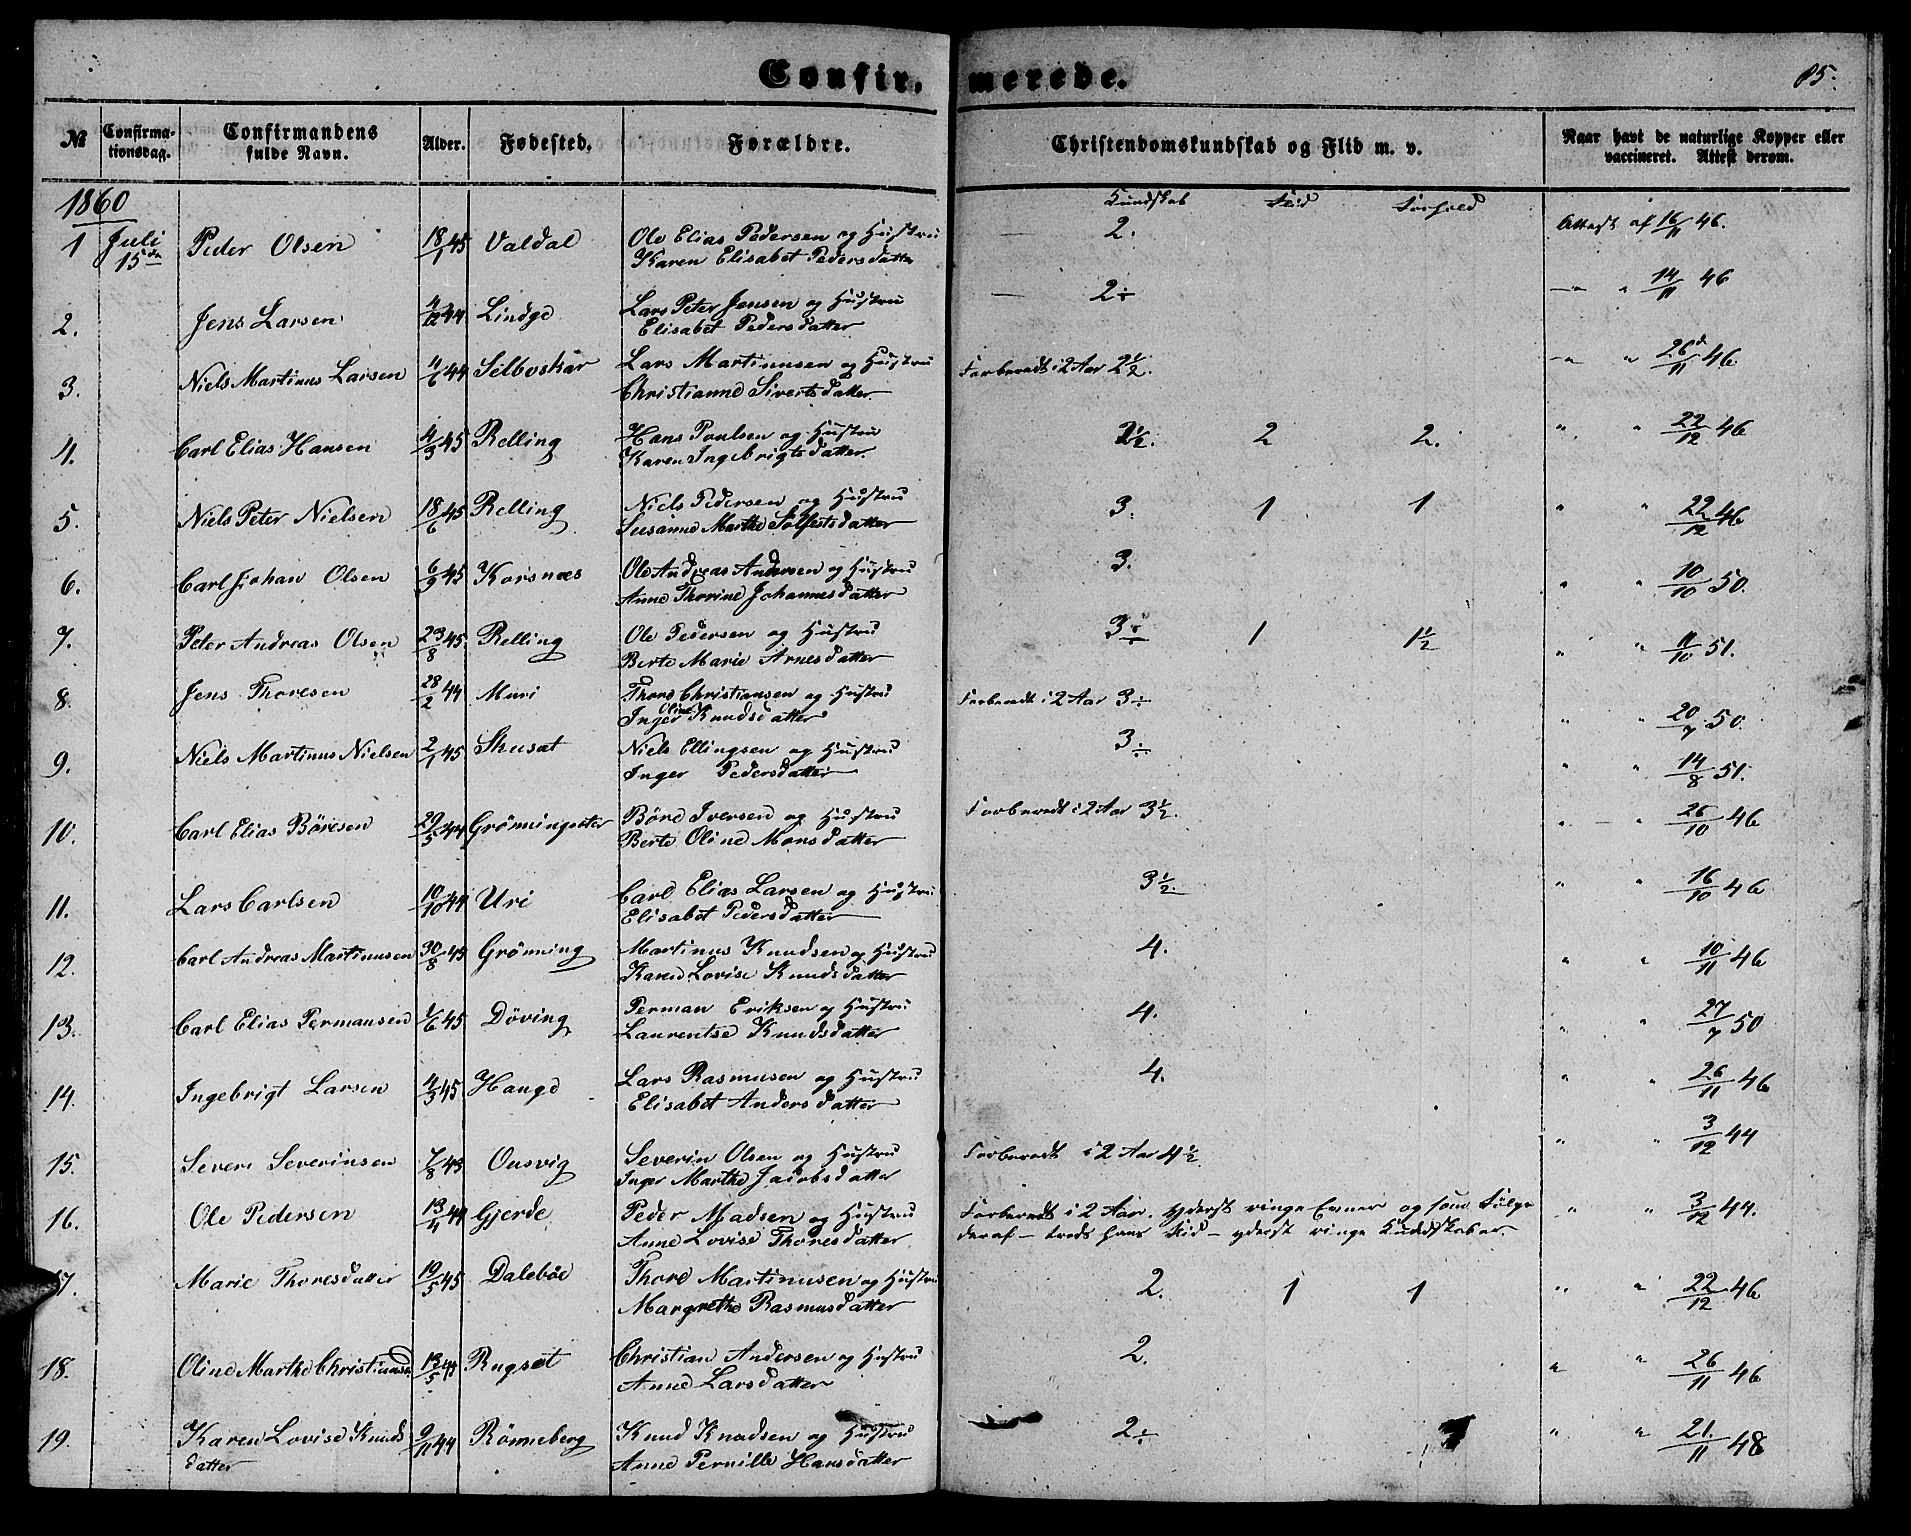 Confir. merede.
85.
№ Confirma- Confirmandens Alder. Fødested. Forældre. Christendomskundskab og Flid m. v. Naar havt de naturlige Kopper eller
tionsdag. fulde Navn. vaccineret. Attest derom.
1860 Kundskab Flid Forhold
1 Juli Peder Olsen 18/1 45 Valdal Ole Elias Pedersen og Hustru — 2. Attest af 16/11 46.
15de Karen Elisabet Pedersdatter
2. Jens Larsen 4/12 44 Lindge Lars Peter Jensen og Hustru — 2÷ —" " 14/11 46
Elisabet Pedersdatter
3. Niels Martinus Larsen 4/6 44 Selboskar Lars Martinusen og Hustru Forberedt i 2 Aar 2½. —" " 26/11 46.
Christianne Sivertsdatter
4. Carl Elias Hansen 4/3 45 Relling Hans Poulsen og Hustru 2½. 2 2. " " 22/12 46
Karen Ingebrigtsdatter.
5. Niels Peter Nielsen 18/6 45 Relling Niels Pedersen og Hustru 3. 1 1 " " 22/12 46
Susanne Marthe Solfestsdatter
6. Carl Johan Olsen 6/9 45 Korsnæs Ole Andreas Andersen og Hustru 3. " " 10/10 50.
Anne Thorine Johannesdatter
7. Peter Andreas Olsen 23/8 45 Relling Ole Pedersen og Hustru 3÷ 1 1½ " " 11/10 51.
Berte Marie Arnesdatter
8. Jens Thoresen 28/2 44 Muri Thore Christiansen og Hustru Forberedt i 2 Aar 3÷ " " 20/7 50.
Inger Oline Knudsdatter
9. Niels Martinus Nielsen 2/1 45 Niels Ellingsen og Hustru 3÷ " " 14/8 51.
Inger Pedersdatter
10. Carl Elias Böresen 29/5 44 Grönningsæter Böre Iversen og Hustru Forberedt i 2 Aar 3½. " — " 26/10 46
Berte Oline Monsdatter
11. Lars Carlsen 10/10 44 Uri Carl Elias Larsen og Hustru 3½. " " 16/10 46
Elisabet Pedersdatter
12. Carl Andreas Martinusen 30/8 45 Grönning Martinus Knudsen og Hustru 4. " " 10/11 46
Karen Lovise Knudsdatter
13. Carl Elias Permansen 1/6 45 Döving Perman Eriksen og Hustru 4. " " 27/7 50
Laurentse Knudsdatter
14. Ingebrigt Larsen 4/3 45 Hauge Lars Rasmusen og Hustru 4. " " 26/11 46
Elisabet Andersdatter
15. Severi Severinsen 7/8 43 Ousvig Severin Olsen og Hustru Forberedt i 2 Aar 4½. " " 3/12 44
Inger Marthe Jacobsdatter
16. Ole Pedersen 13/4 44 Gjerde Peder Madsen og Hustru Forberedt i 2 Aar. yderst ringe Evner og som Fölge " " 3/12 44.
Anne Lovise Thoresdatter. deraf — trods hans Flid — yderst ringe Kundskaber.
17. Marie Thoresdatter 19/5 45 Daleböe Thore Martinusen og Hustru 2. 1 1 " " 22/12 46
Margrethe Rasmusdatter
18. Oline Marthe 13/5 44 Rugset Christian Andersen og Hustru 2. " " 26/11 46
Anne Larsdatter
19. Karen Lovise Knuds 9/11 44 Rönneberg Knud Knudsen og Hustru 2÷ " " 21/11 48
datter Anne Pernille Hansdatter